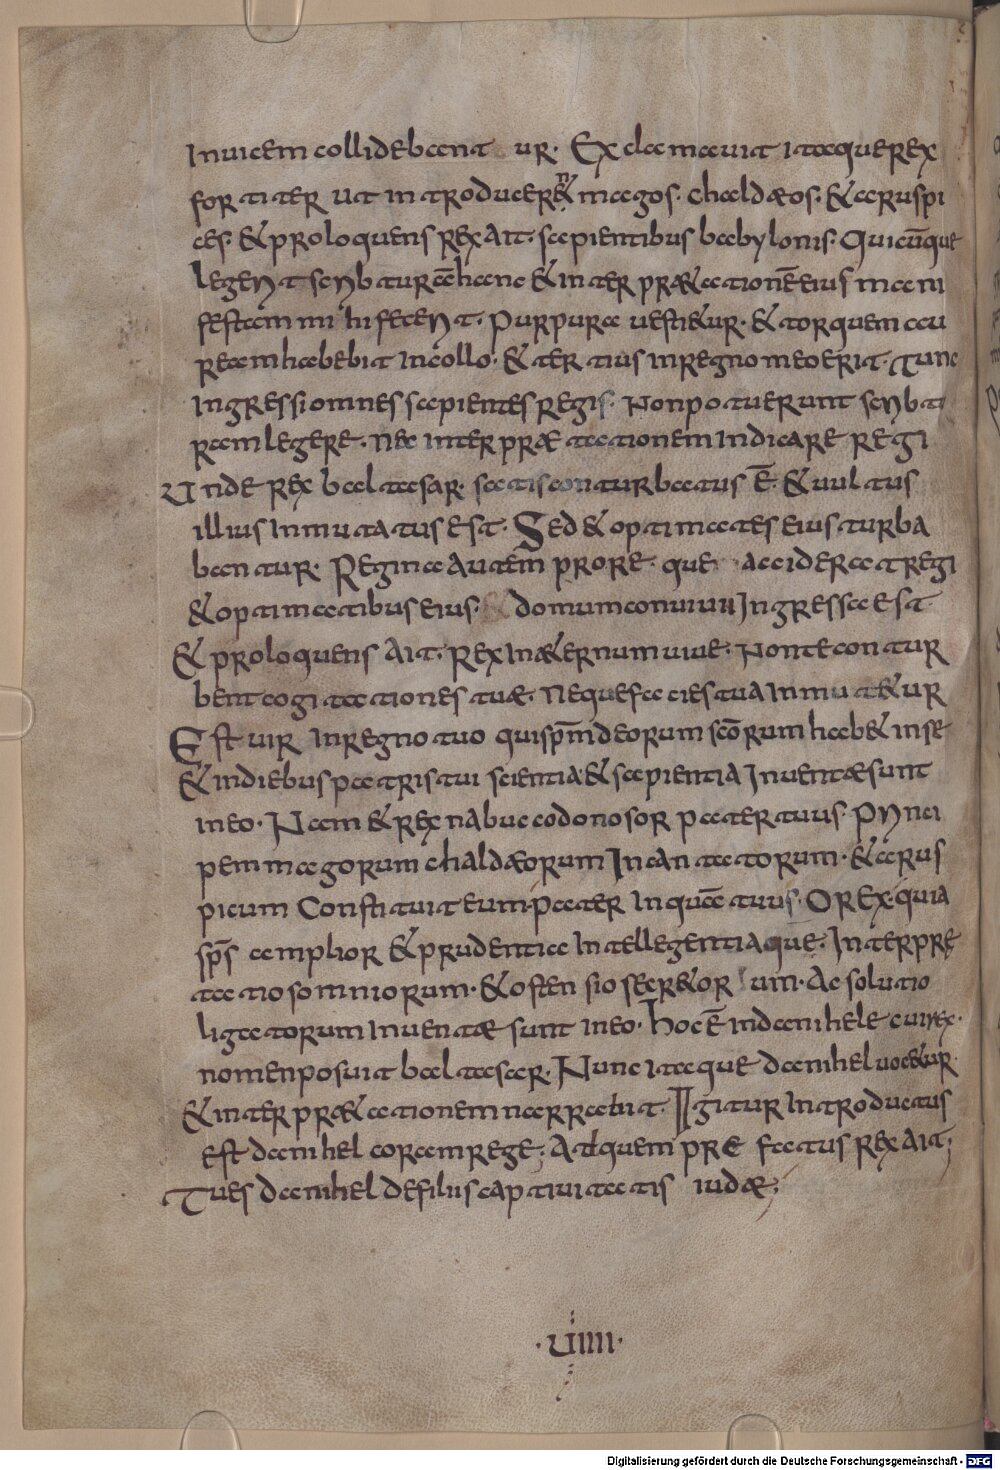 Inuicem collidebant ur. Exclamauit itaque rex
fortiter ut introducer&n magos. chaldæos. & aruspi
ces. & proloquens rex ait. sapientibus babylonis. Quicūque
legerit scribturā hanc & inter præ&ationē eius mani
festam mihi fecerit. purpura uesti&ur. & torquem au
ream habebit in collo. & tertius in regno meo erit. Tunc
ingressi omnes sapientes regis. Non potuerunt scribtu
ram legere. nec interpræ tationem indicare regi
Unde rex baltasar. satis conturbatus ē. & uultus
illius inmutatus est. Sed & optimates eius turba
bantur. Regina autem pro re. que acciderat regi
& optimatibus eius. domum conuiuii Ingressa est
& proloquens ait. Rex in æ&ernum uiue. Non te contur
bent cogitationes tuæ. neque facies tua inmut&ur
Est uir in regno tuo qui spm deorum scōrum hab& in se
& in diebus patris tui scientia & sapientia Inuentæ sunt
in eo. Nam & rex nabuccodonosor pater tuus. prynci
pem magorum chaldæorum Incantatorum. & arus
picum Constituit eum. pater inquā tuus. O rex. quia
sp̄s amplior & prudentia Intellegentia que. Interpre
tatio somniorum. & ostensio secr&orum. Ac solutio
ligatorum inuentæ sunt in eo. hoc ē in danihele cui rex.
nomen posuit baltasar. Nunc itaque danihel uoc&ur.
& inter præ&ationem narrabit. Igitur introductus
est danihel coram rege. Ad quem præfatus rex ait;
Tu es danihel de filiis captiuitatis iudæ;
.uiiii.
Digitalisierung gefördert durch die Deutsche Forschungsgemeinschaft - DFG